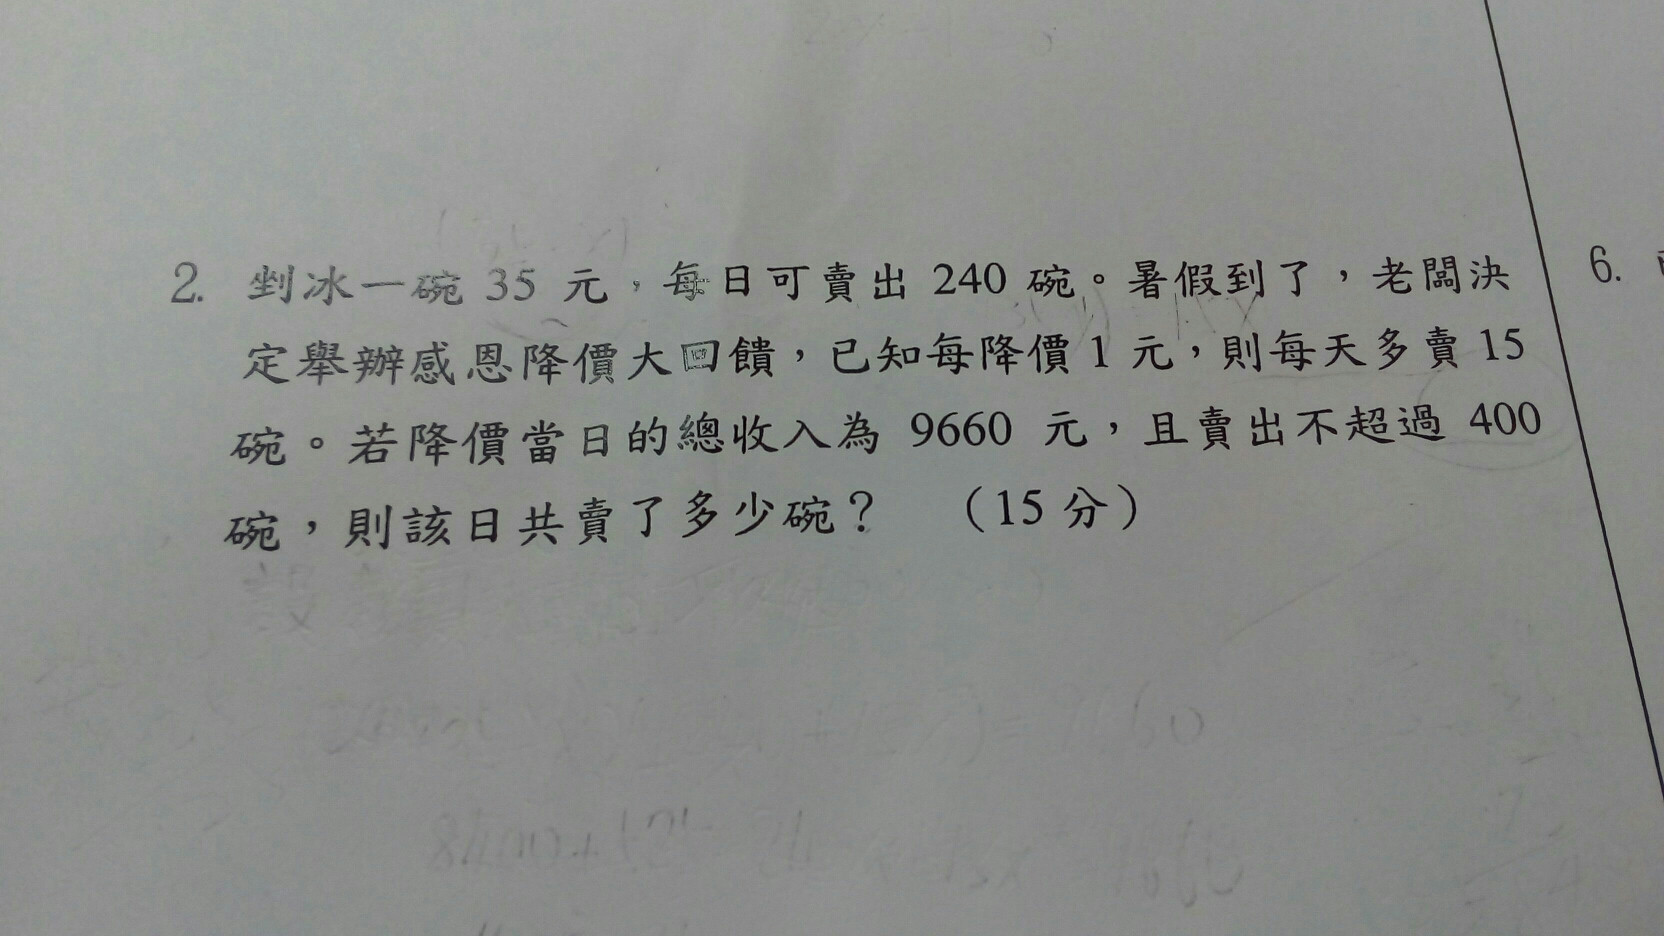 2. 剉冰一碗 35 元，每日可賣出 240 碗。暑假到了，老闆決
定舉辦感恩降價大回饋，已知每降價 1 元，則每天多賣 15
碗。若降價當日的總收入為 9660 元，且賣出不超過 400
碗，則該日共賣了多少碗？ （15 分）
6.